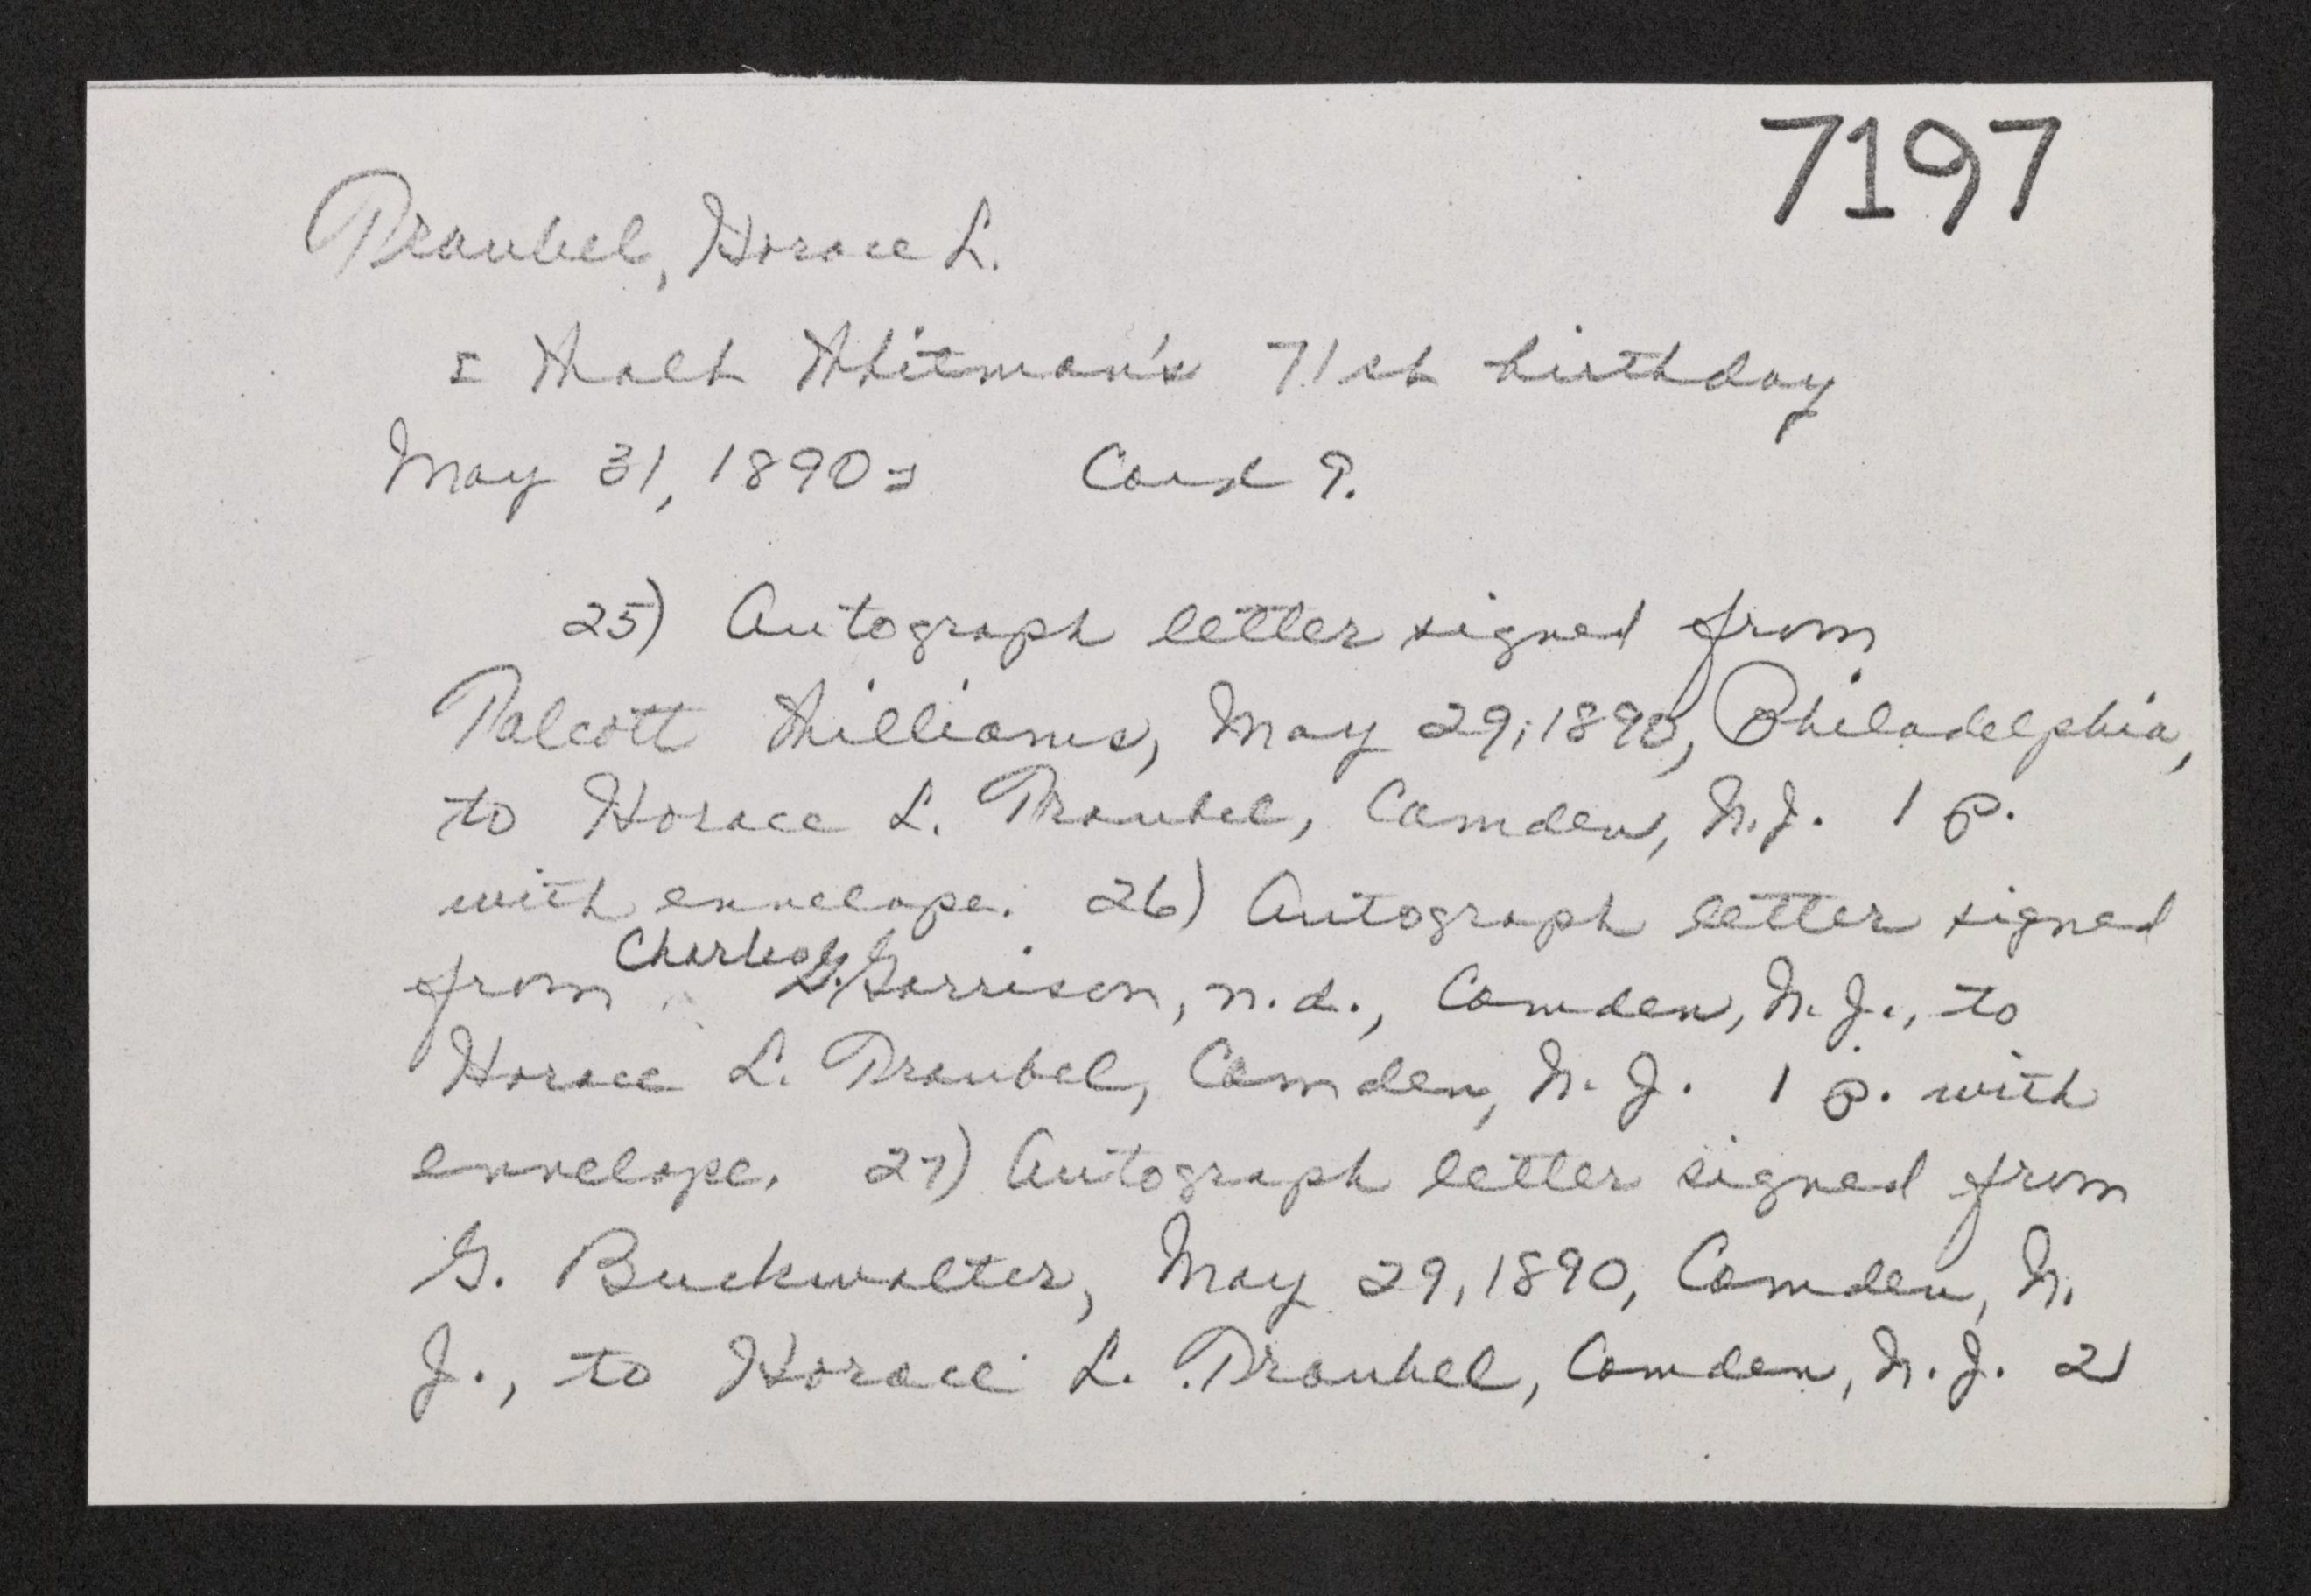 7197
Traubel, Horace L.
[Walt Whitman's 71st birthday
May 31, 1890] Card 9.
25) Autograph letter signed from
Talcott Williams, May 29, 1890, Philadelphia,
to Horace L. Traubel, Camden, N.J. 1 p.
with envelope. 26) Autograph letter signed
from Charles G. Garrison, n.d., Camden, N.J., to
Horace L. Traubel, Camden, N.J. 1 p. with
envelope. 27) Autograph letter signed from
G. Buckwalter, May 29, 1890, Camden, N.
J., to Horace L. Traubel, Camden, N.J. 2